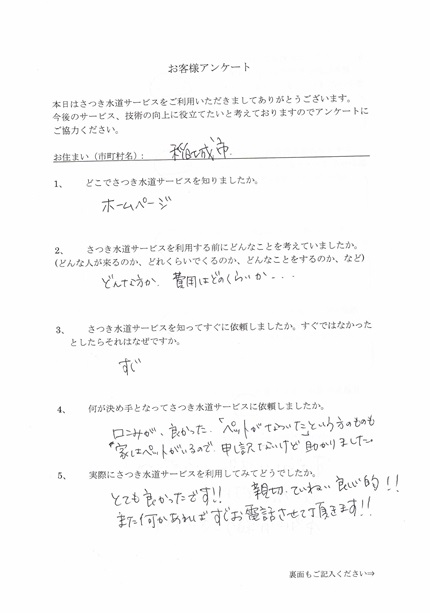 お客様アンケート
本日はさつき水道サービスをご利用いただきましてありがとうございます。
今後のサービス、技術の向上に役立てたいと考えておりますのでアンケートに
ご協力ください。
お住まい（市町村名）： 稲城市.
1、 どこでさつき水道サービスを知りましたか。
ホームページ
2、 さつき水道サービスを利用する前にどんなことを考えていましたか。
(どんな人が来るのか、どれくらいでくるのか、どんなことをするのか、など)
どんな方か、費用はどのくらいか・・・
3、 さつき水道サービスを知ってすぐに依頼しましたか。すぐではなかった
としたらそれはなぜですか。
すぐ
4、 何が決め手となってさつき水道サービスに依頼しましたか。
口コミが、良かった.「ペットがないた」という方のものも
家はペットがいるので、申し訳ないけど助かりました。
5、 実際にさつき水道サービスを利用してみてどうでしたか。
とても良かったです!! 親切、ていねい 良心的!!
また何かあればすぐお電話させて頂きます!!
裏面もご記入ください⇒